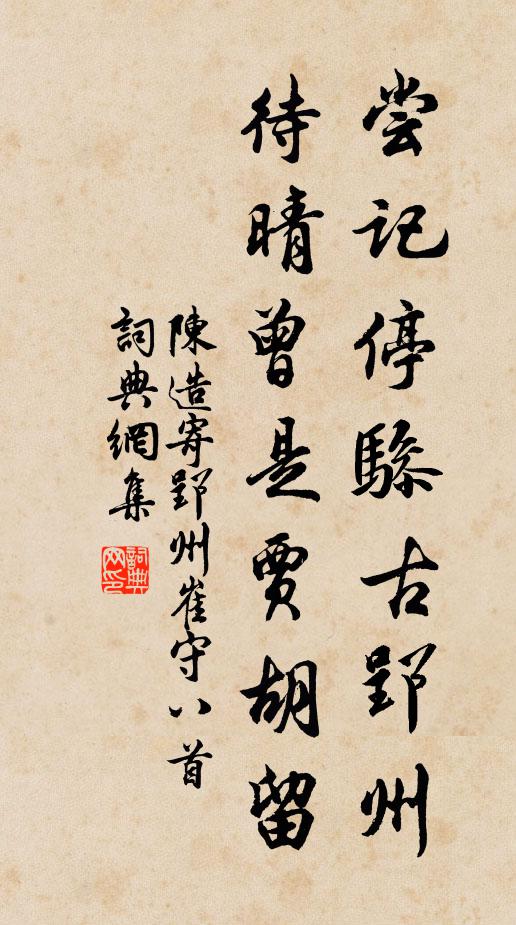 尝记停骖古郢州
待晴曾是贾胡留
陳造寄郢州崔守八首
詞典網集
詞典网印